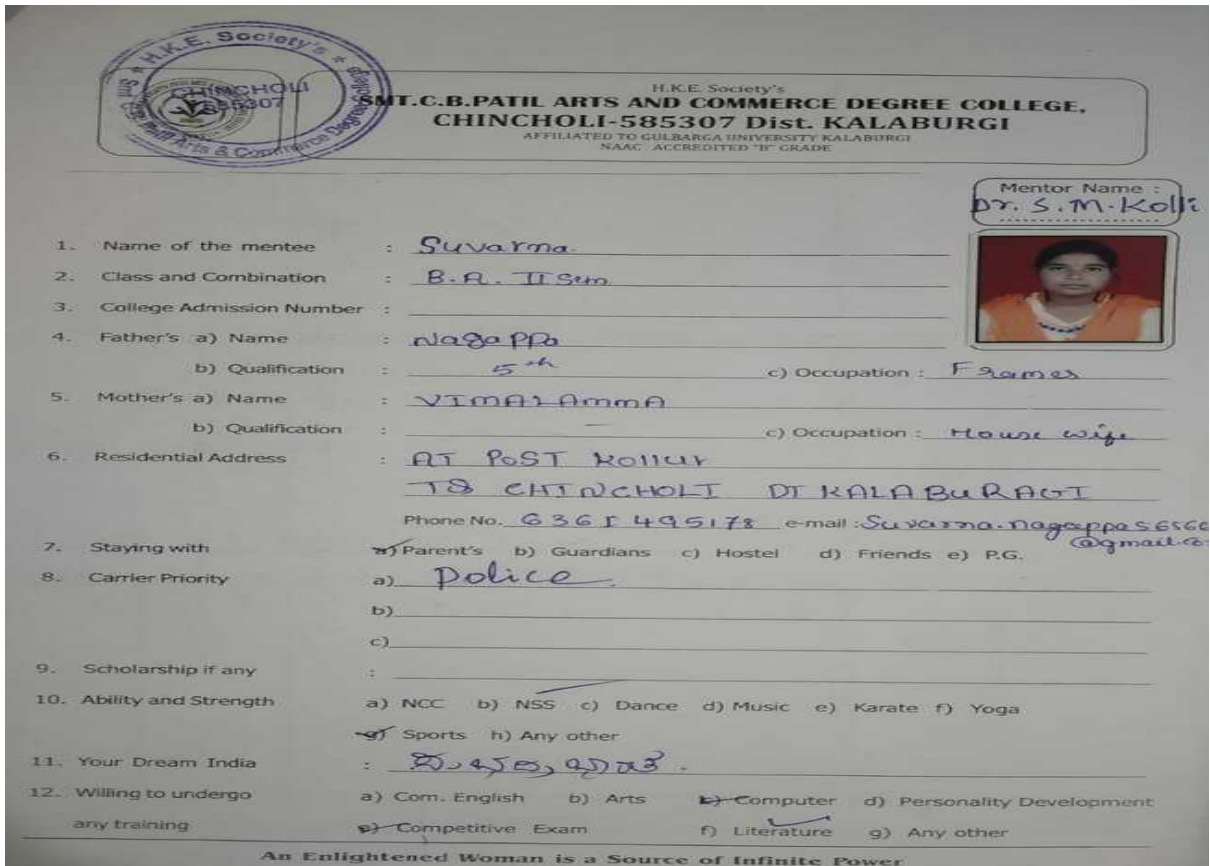 H.K.E. Society's
CHINCHOLI
585307
H.K.E. Society's
SMT.C.B.PATIL ARTS AND COMMERCE DEGREE COLLEGE,
CHINCHOLI-585307 Dist. KALABURGI
AFFILIATED TO GULBARGA UNIVERSITY KALABURGI
NAAC ACCREDITED "B" GRADE
Mentor Name :
Dr. S.M.Kolli
1. Name of the mentee : Suvarna
2. Class and Combination : B.A. II Sem
3. College Admission Number :
4. Father's a) Name : Nagappa
b) Qualification : 5th c) Occupation : Frames
5. Mother's a) Name : VIMALAmmA
b) Qualification : — c) Occupation : House wife
6. Residential Address : AT POST Kollur
TQ CHINCHOLI DT KALABURAGI
Phone No. 6361495178 e-mail :
@gmail.
7. Staying with a) Parent's b) Guardians c) Hostel d) Friends e) P.G.
8. Carrier Priority a) Police
b)
c)
9. Scholarship if any :
10. Ability and Strength a) NCC b) NSS c) Dance d) Music e) Karate f) Yoga
g) Sports h) Any other
11. Your Dream India :
12. Willing to undergo a) Com. English b) Arts c) Computer d) Personality Development
any training e) Competitive Exam f) Literature g) Any other
An Enlightened Woman is a Source of Infinite Power